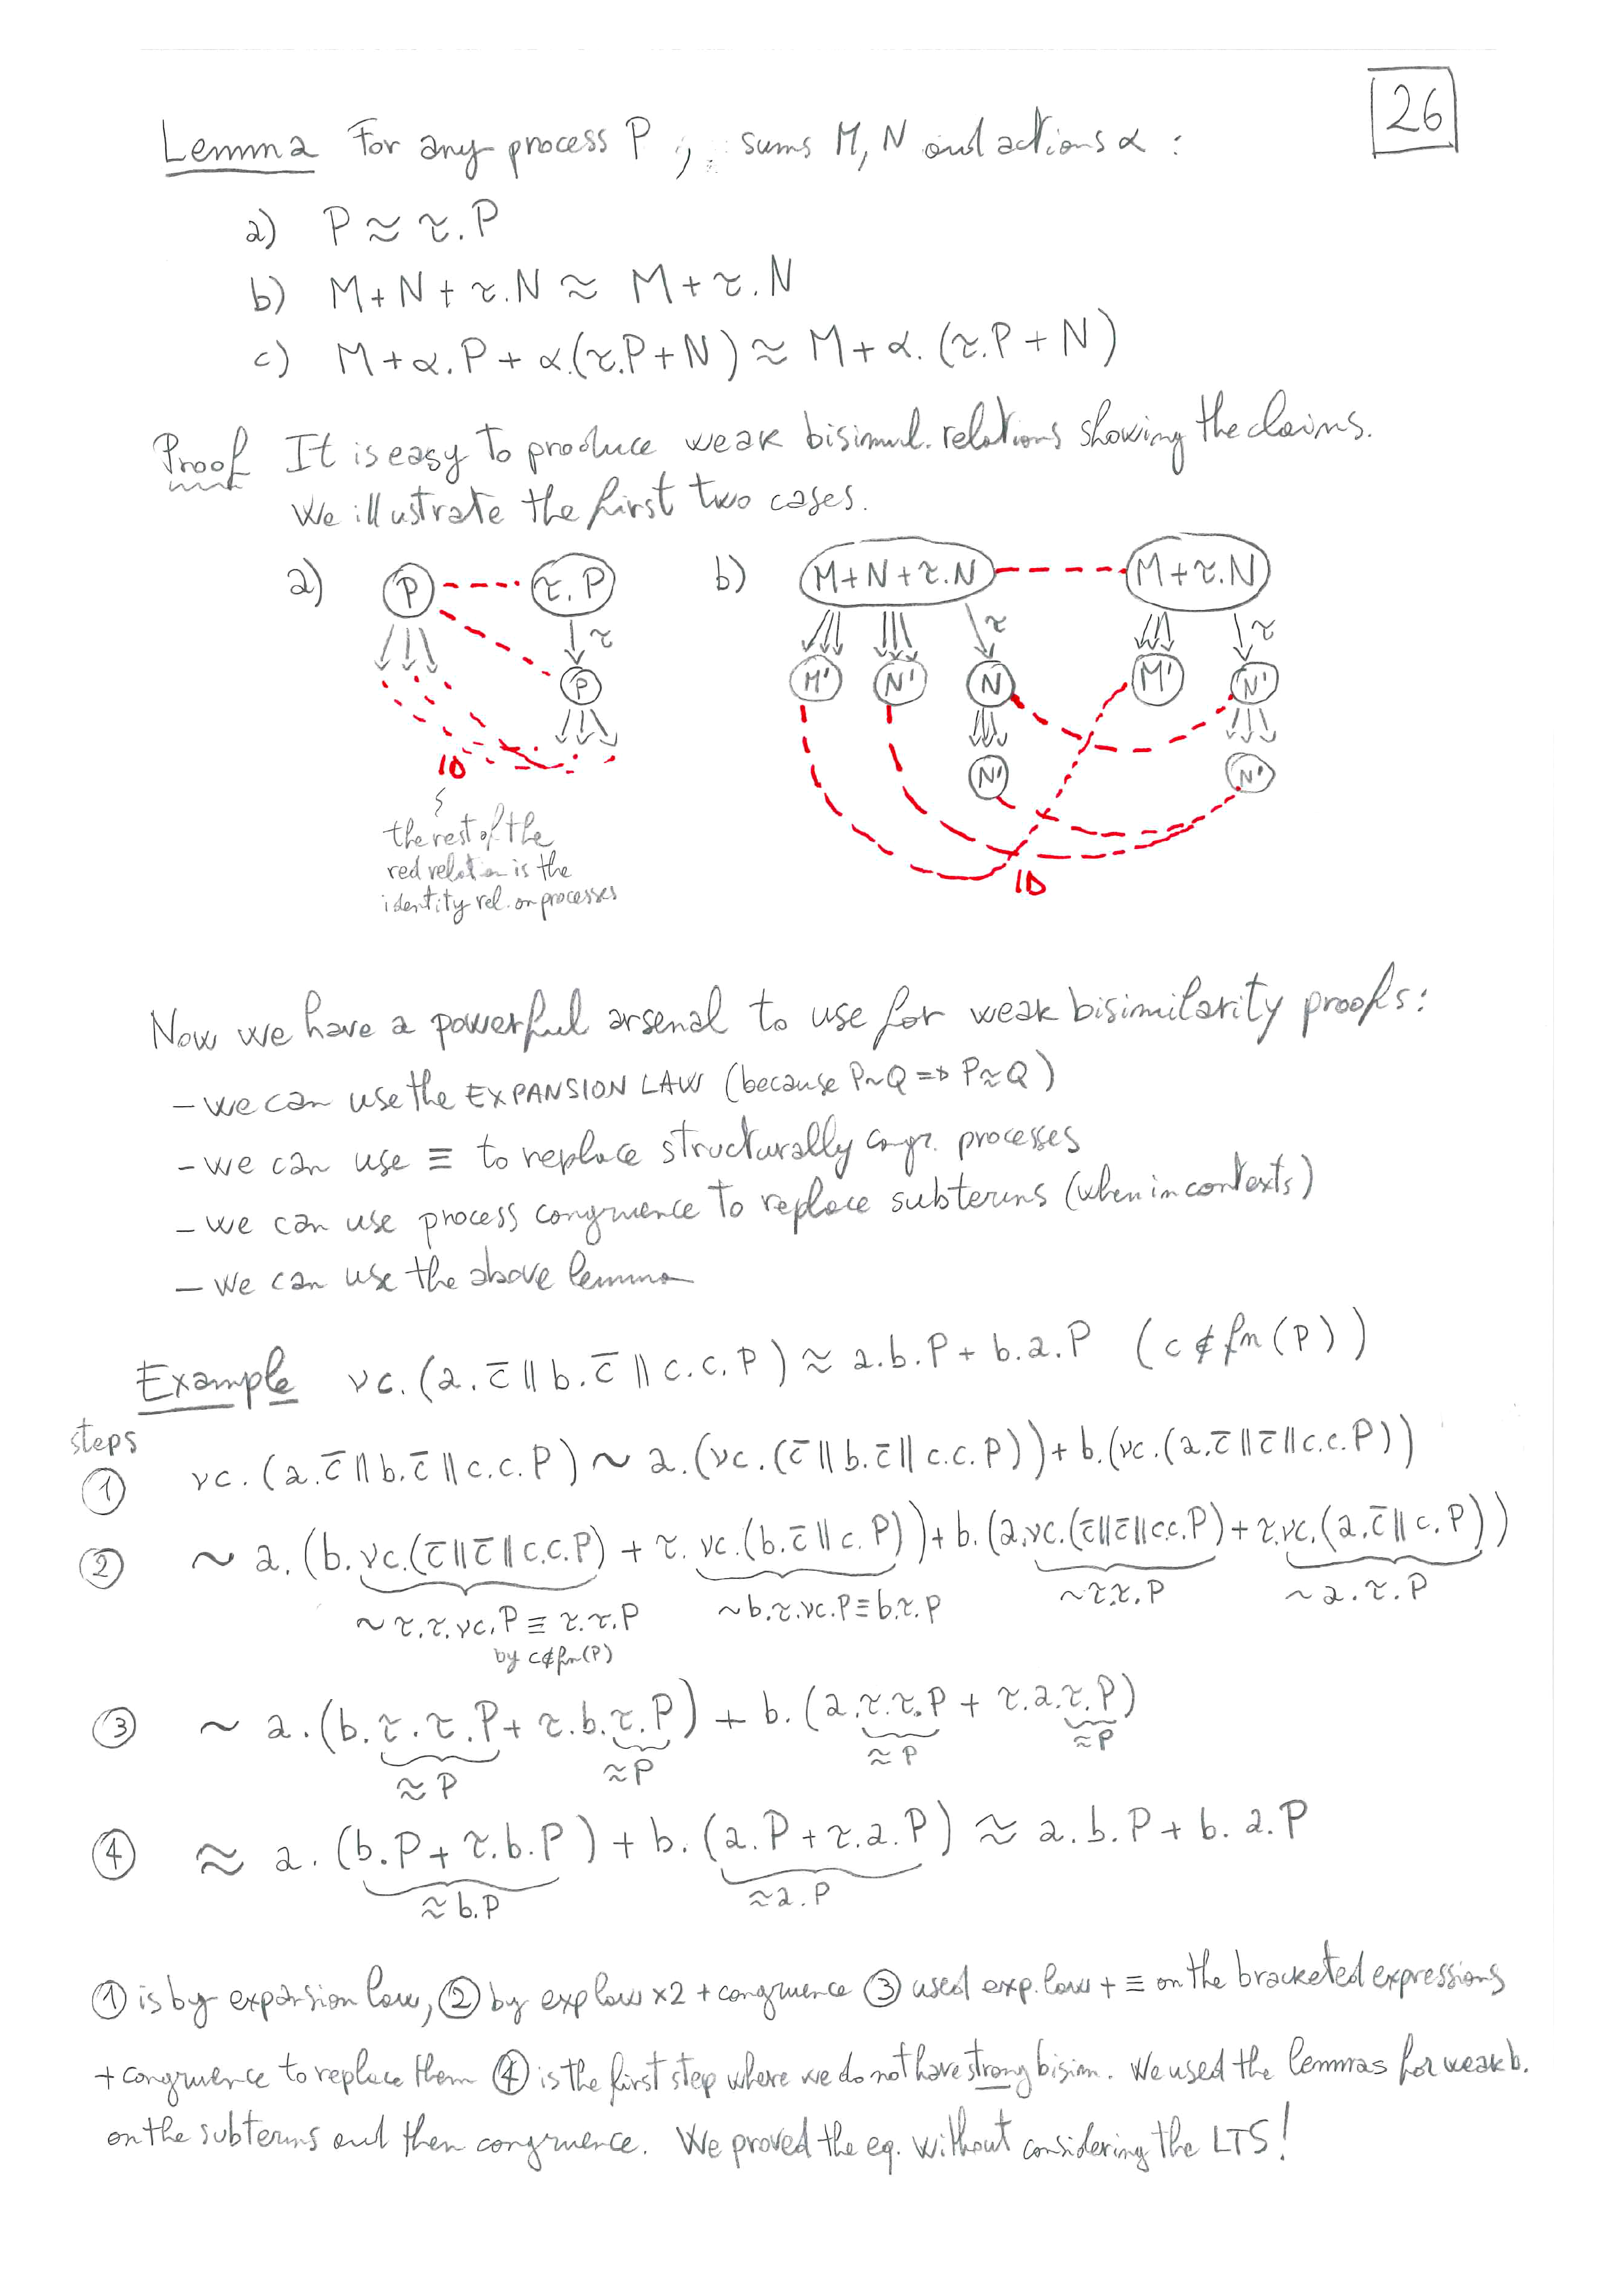 26
Lemma For any process P, sums M, N and actions α :
a) P ≈ τ.P
b) M+N+τ.N ≈ M+τ.N
c) M+α.P+α.(τ.P+N) ≈ M+α.(τ.P+N)
Proof It is easy to produce weak bisimul. relations showing the claims.
We illustrate the first two cases.
a) P τ.P b) M+N+τ.N M+τ.N
τ τ τ
P M' N' N M' N'
N' N'
ID
the rest of the
red relation is the
identity rel. on processes
ID
Now we have a powerful arsenal to use for weak bisimilarity proofs:
- we can use the EXPANSION LAW (because P~Q => P≈Q)
- we can use ≡ to replace structurally congr. processes
- we can use process congruence to replace subterms (when in contexts)
- we can use the above lemma
Example νc.(a.c̄ || b.c̄ || c.c.P) ≈ a.b.P + b.a.P (c ∉ fn(P))
steps
① νc.(a.c̄ || b.c̄ || c.c.P) ~ a.(νc.(c̄ || b.c̄ || c.c.P)) + b.(νc.(a.c̄ || c̄ || c.c.P))
② ~ a.(b.νc.(c̄ || c̄ || c.c.P) + τ.νc.(b.c̄ || c.P)) + b.(a.νc.(c̄ || c̄ || c.c.P) + τ.νc.(a.c̄ || c.P))
~ τ.τ.νc.P ≡ τ.τ.P ~ b.τ.νc.P ≡ b.τ.P ~ τ.τ.P ~ a.τ.P
by c∉fn(P)
③ ~ a.(b.τ.τ.P + τ.b.τ.P) + b.(a.τ.τ.P + τ.a.τ.P)
≈ P ≈ P ≈ P ≈ P
④ ≈ a.(b.P + τ.b.P) + b.(a.P + τ.a.P) ≈ a.b.P + b.a.P
≈ b.P ≈ a.P
① is by expansion law, ② by exp law x2 + congruence ③ used exp. law + ≡ on the bracketed expressions
+ congruence to replace them ④ is the first step where we do not have strong bisim. We used the lemmas for weak b.
on the subterms and then congruence. We proved the eq. without considering the LTS!